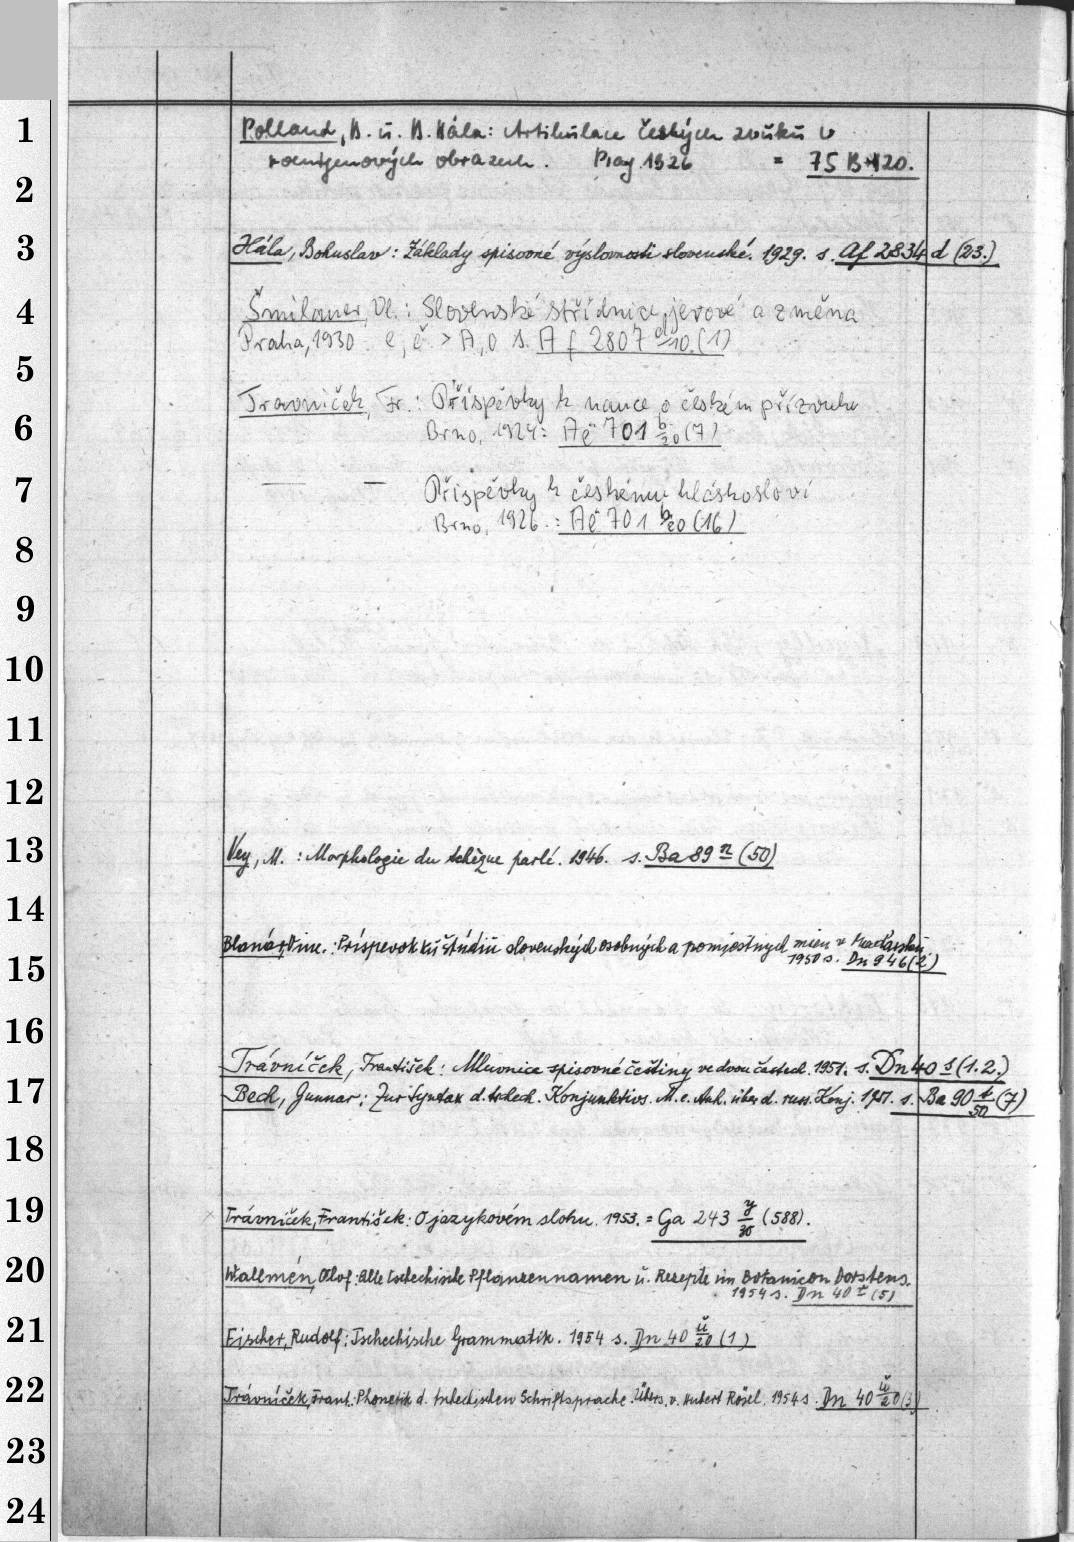 1
Polland, B. u. B. Hála: Artikulace českých zvuků v
roentgenových obrazech. Prag 1926 = 75 B 120.
2
3
Hála, Bohuslav: Základy spisovné výslovnosti slovenské. 1929. s. Af 2834 d (23.)
4
Šmilauer, Vl.: Slovenské střídnice jerové a změna
Praha, 1930. e, ě > A, O s. Af 2807 d/10.(1)
5
Travniček, Fr.: Příspěvky k nauce o českém přízvuku
6
Brno, 1924: Ae 701 b/20 (7)
7
— — Příspěvky k českému hláskosloví
Brno, 1926.: Ae 701 b/20 (16)
8
9
10
11
12
13
Vey, M.: Morphologie du tchèque parlé. 1946. s. Ba 89 n (50)
14
Blanár, Vinc.: Príspevok ku štúdiu slovenských osobných a pomiestnych mien v Maďarsku
15
1950 s. Dn 946 (2)
16
Trávníček, František: Mluvnice spisovné češtiny ve dvou částech. 1951. s. Dn 40 s (1.2.)
17
Bech, Gunnar: Zur Syntax d. tschech. Konjunktivs. M. e. Anh. über d. russ. Konj. 1951. s. Ba 90 t/50 (7)
18
19
Trávníček, František: O jazykovém slohu. 1953. = Ga 243 y/30 (588).
20
Wallmén, Olof: Alte tschechische Pflanzennamen u. Rezepte im Botanicon Dorstens.
1954 s. Dn 40 t (5)
21
Fischer, Rudolf: Tschechische Grammatik. 1954 s. Dn 40 ü/20 (1)
22
Trávníček, Frant.: Phonetik d. tschechischen Schriftsprache. Übers. v. Hubert Rösel. 1954 s. Dn 40 ü/20 (3)
23
24